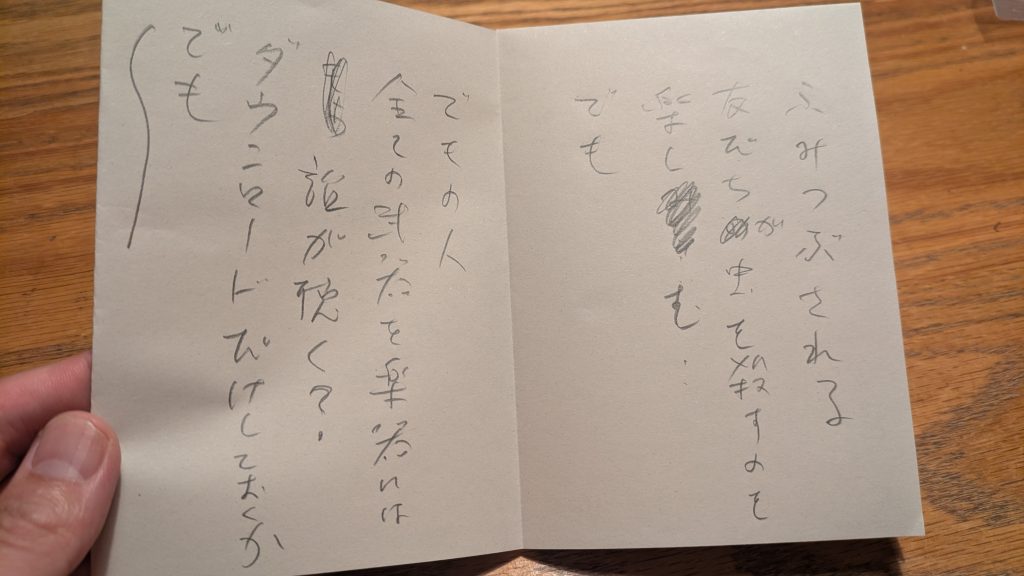 ふみつぶされる
友だちが虫を殺すのを
楽しむ.
でも
でもの人
全ての武器を楽器には
誰が聴く?.
ダウンロードだけしておくか
でも